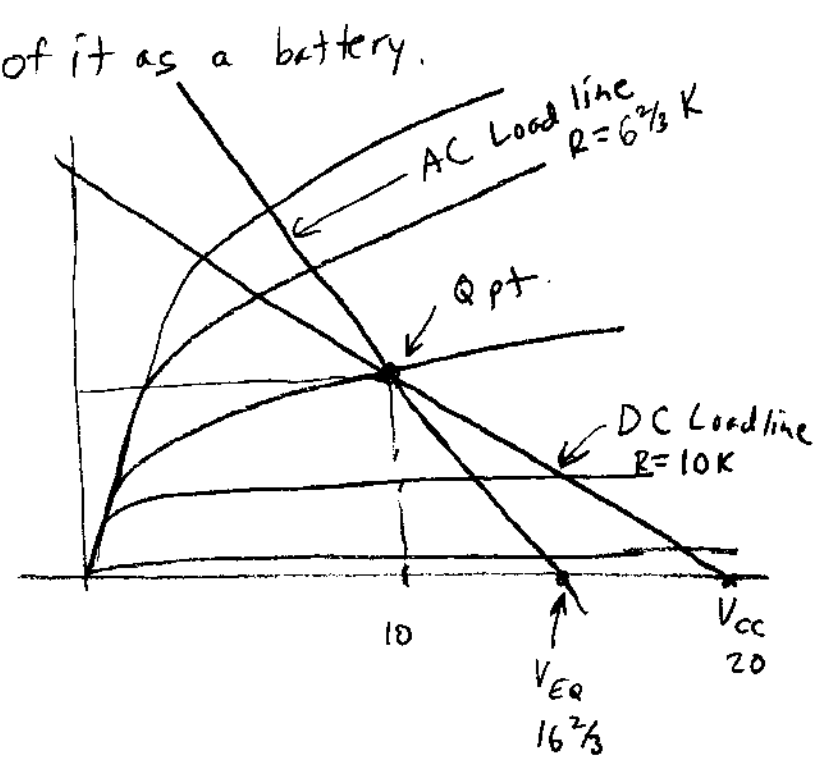 of it as a battery.
AC Load line
R=6⅔ K
Q pt.
DC Loadline
R=10K
10
VCC
20
VEQ
16⅔